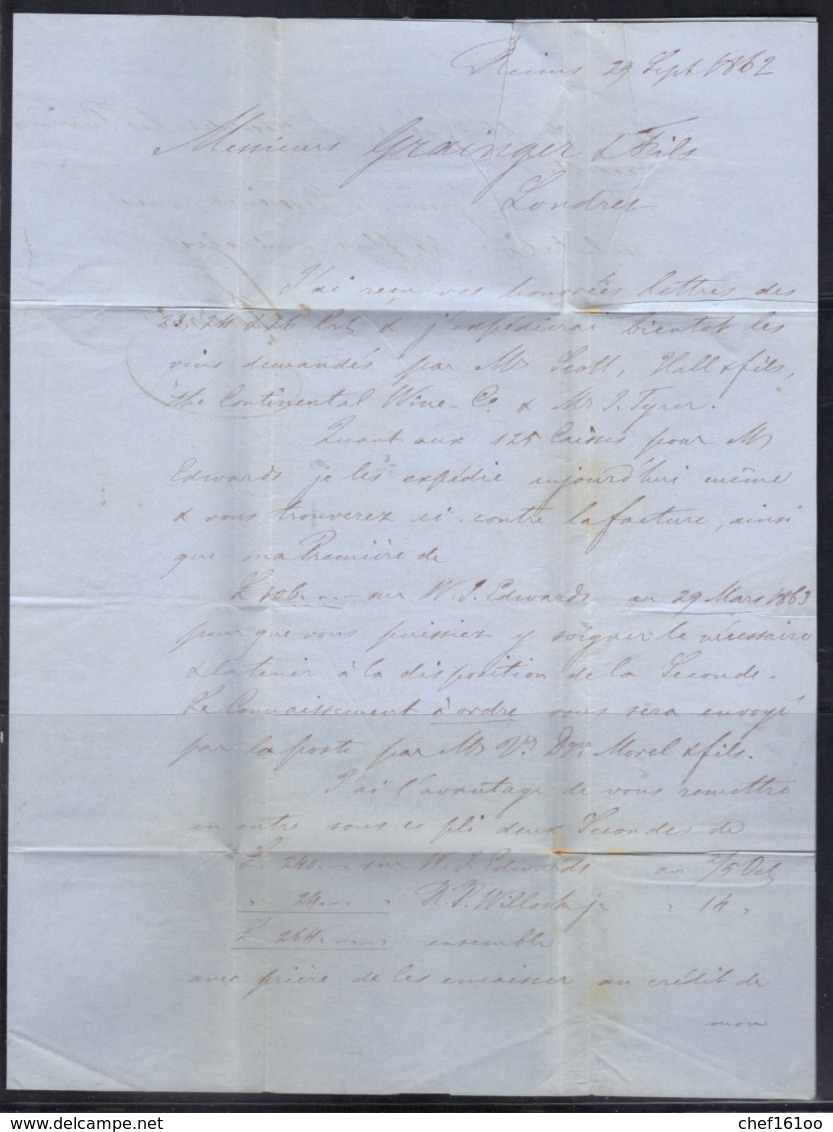 Reims 29 Sept 1862
Messieurs Grainger & Fils
Londres
J'ai reçu vos honorées lettres des
23, 24 & 26 & j'expédierai bientot les
vins demandés par Mrs Scott, Hall & fils,
The Continental Wine Co. & Mr J. Tyrer.
Quant aux 125 Caisses pour Mr
Edwards je les expédie aujourd'hui même
& vous trouverez ci-contre la facture, ainsi
que ma Première de
sur W. J. Edwards au 29 Mars 1863
pour que vous puissiez y soigner le nécessaire
& la tenir à la disposition de la Seconde.
Le Connaissement à ordre vous sera envoyé
par la poste par Mrs Morel & fils.
J'ai l'avantage de vous remettre
en outre sous ce pli deux Secondes de
£ 240. - sur W. J. Edwards au 2/5 Oct
" 24. - " R. P. Willock jr " 14 "
£ 264. - " ensemble
avec prière de les encaisser au crédit de
mon
chef16100